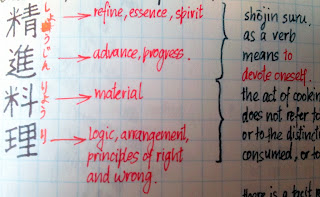 精 しょう → refine, essence, spirit
進 じん → advance, progress.
料 りょう → material
理 り → logic, arrangement,
principles of right
and wrong.
shōjin suru.
as a verb
means to
devote oneself.
the act of cookin
does not refer to
or to the distinctio
consumed, or to
there is a